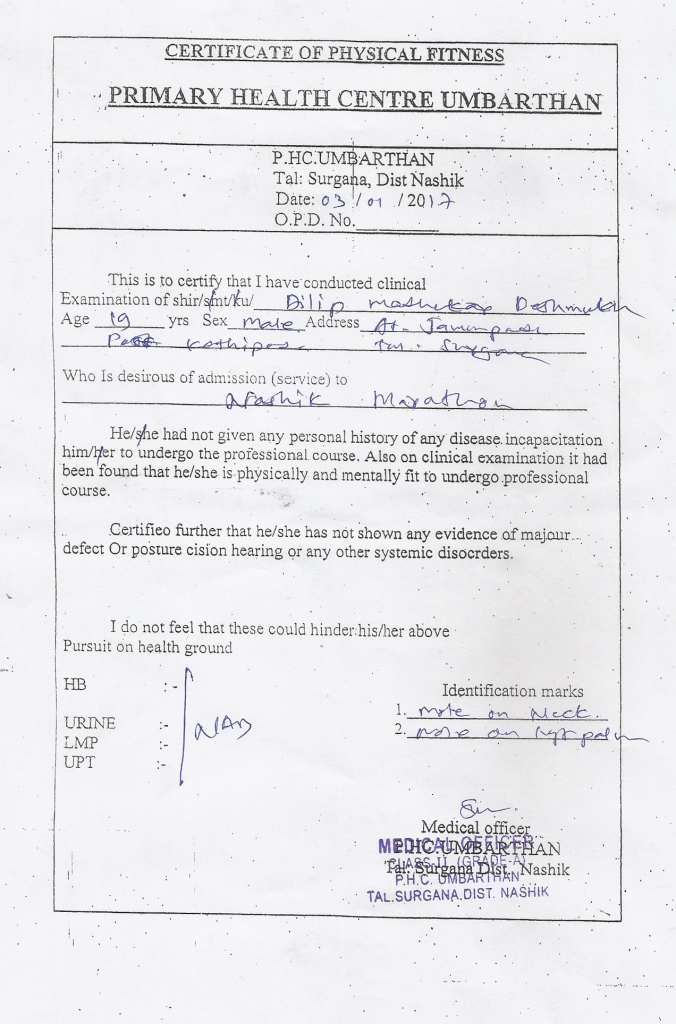 CERTIFICATE OF PHYSICAL FITNESS
PRIMARY HEALTH CENTRE UMBARTHAN
P.HC.UMBARTHAN
Tal: Surgana, Dist Nashik
Date: 03/01/2017
O.P.D. No.
This is to certify that I have conducted clinical
Examination of shir/smt/ku/ Dilip Deshmukh
Age 19 yrs Sex Male Address At.
Tal. Surgana
Who Is desirous of admission (service) to
Nashik Marathon
He/she had not given any personal history of any disease incapacitation
him/her to undergo the professional course. Also on clinical examination it had
been found that he/she is physically and mentally fit to undergo professional
course.
Certifieo further that he/she has not shown any evidence of majour
defect Or posture cision hearing or any other systemic disocrders.
I do not feel that these could hinder his/her above
Pursuit on health ground
HB :-
URINE :- NAD
LMP :-
UPT :-
Identification marks
1. mole on Neck.
2. mole on palm
Medical officer
P.HC.UMBARTHAN
Tal: Surgana Dist, Nashik
MEDICAL OFFICER
CLASS-II (GRADE-A)
P.H.C. UMBARTHAN
TAL.SURGANA.DIST. NASHIK